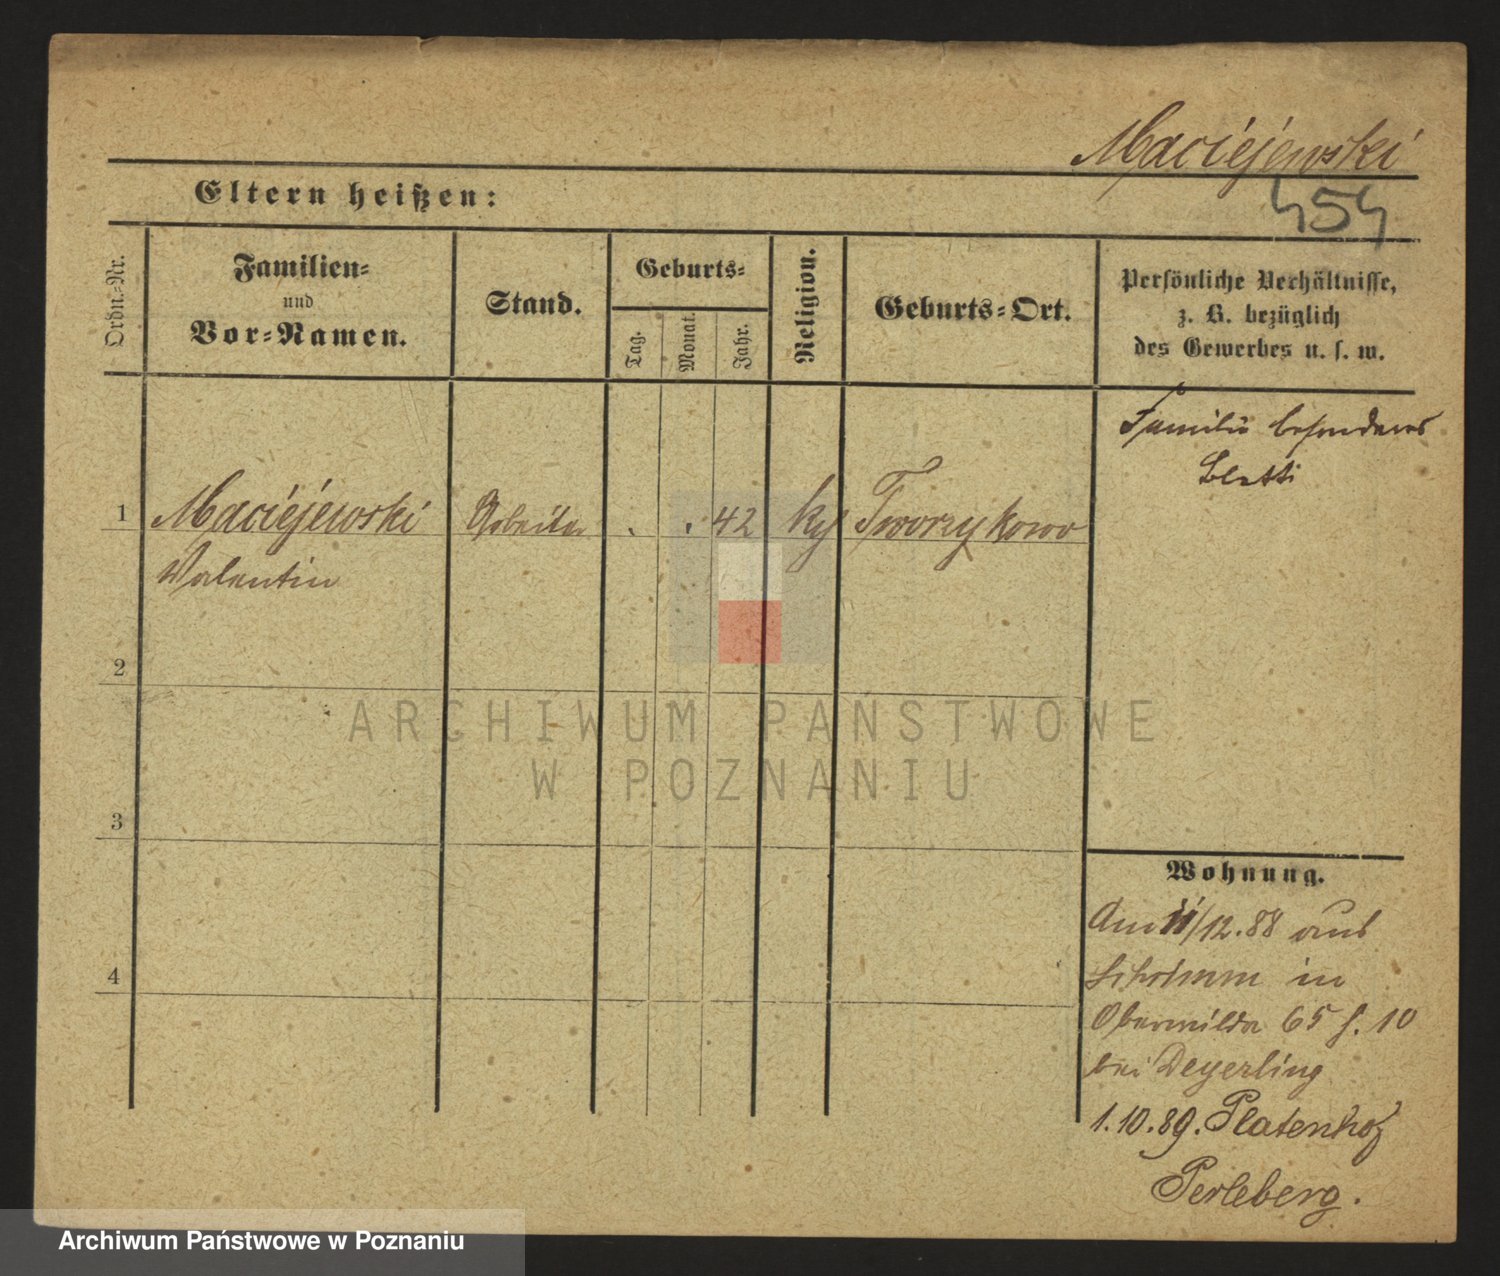 Maciéjewski
454
Eltern heißen:
Ordn.-Nr.
Familien-
und
Vor-Namen.
Stand.
Geburts-
Tag.
Monat.
Jahr.
Religion.
Geburts-Ort.
Persönliche Verhältnisse,
z. B. bezüglich
des Gewerbes u. s. w.
Familie besonderes
Blatt
1 Maciéjewski Arbeiter . . 42 kg Tworzykowo
Valentin
2
3
4
Wohnung.
Am 11/12.88 aus
Schrimm in
Oberwilda 65 f. 10
bei Deyerling
1.10.89. Platenhof
Perleberg.
ARCHIWUM PAŃSTWOWE
W POZNANIU
Archiwum Państwowe w Poznaniu